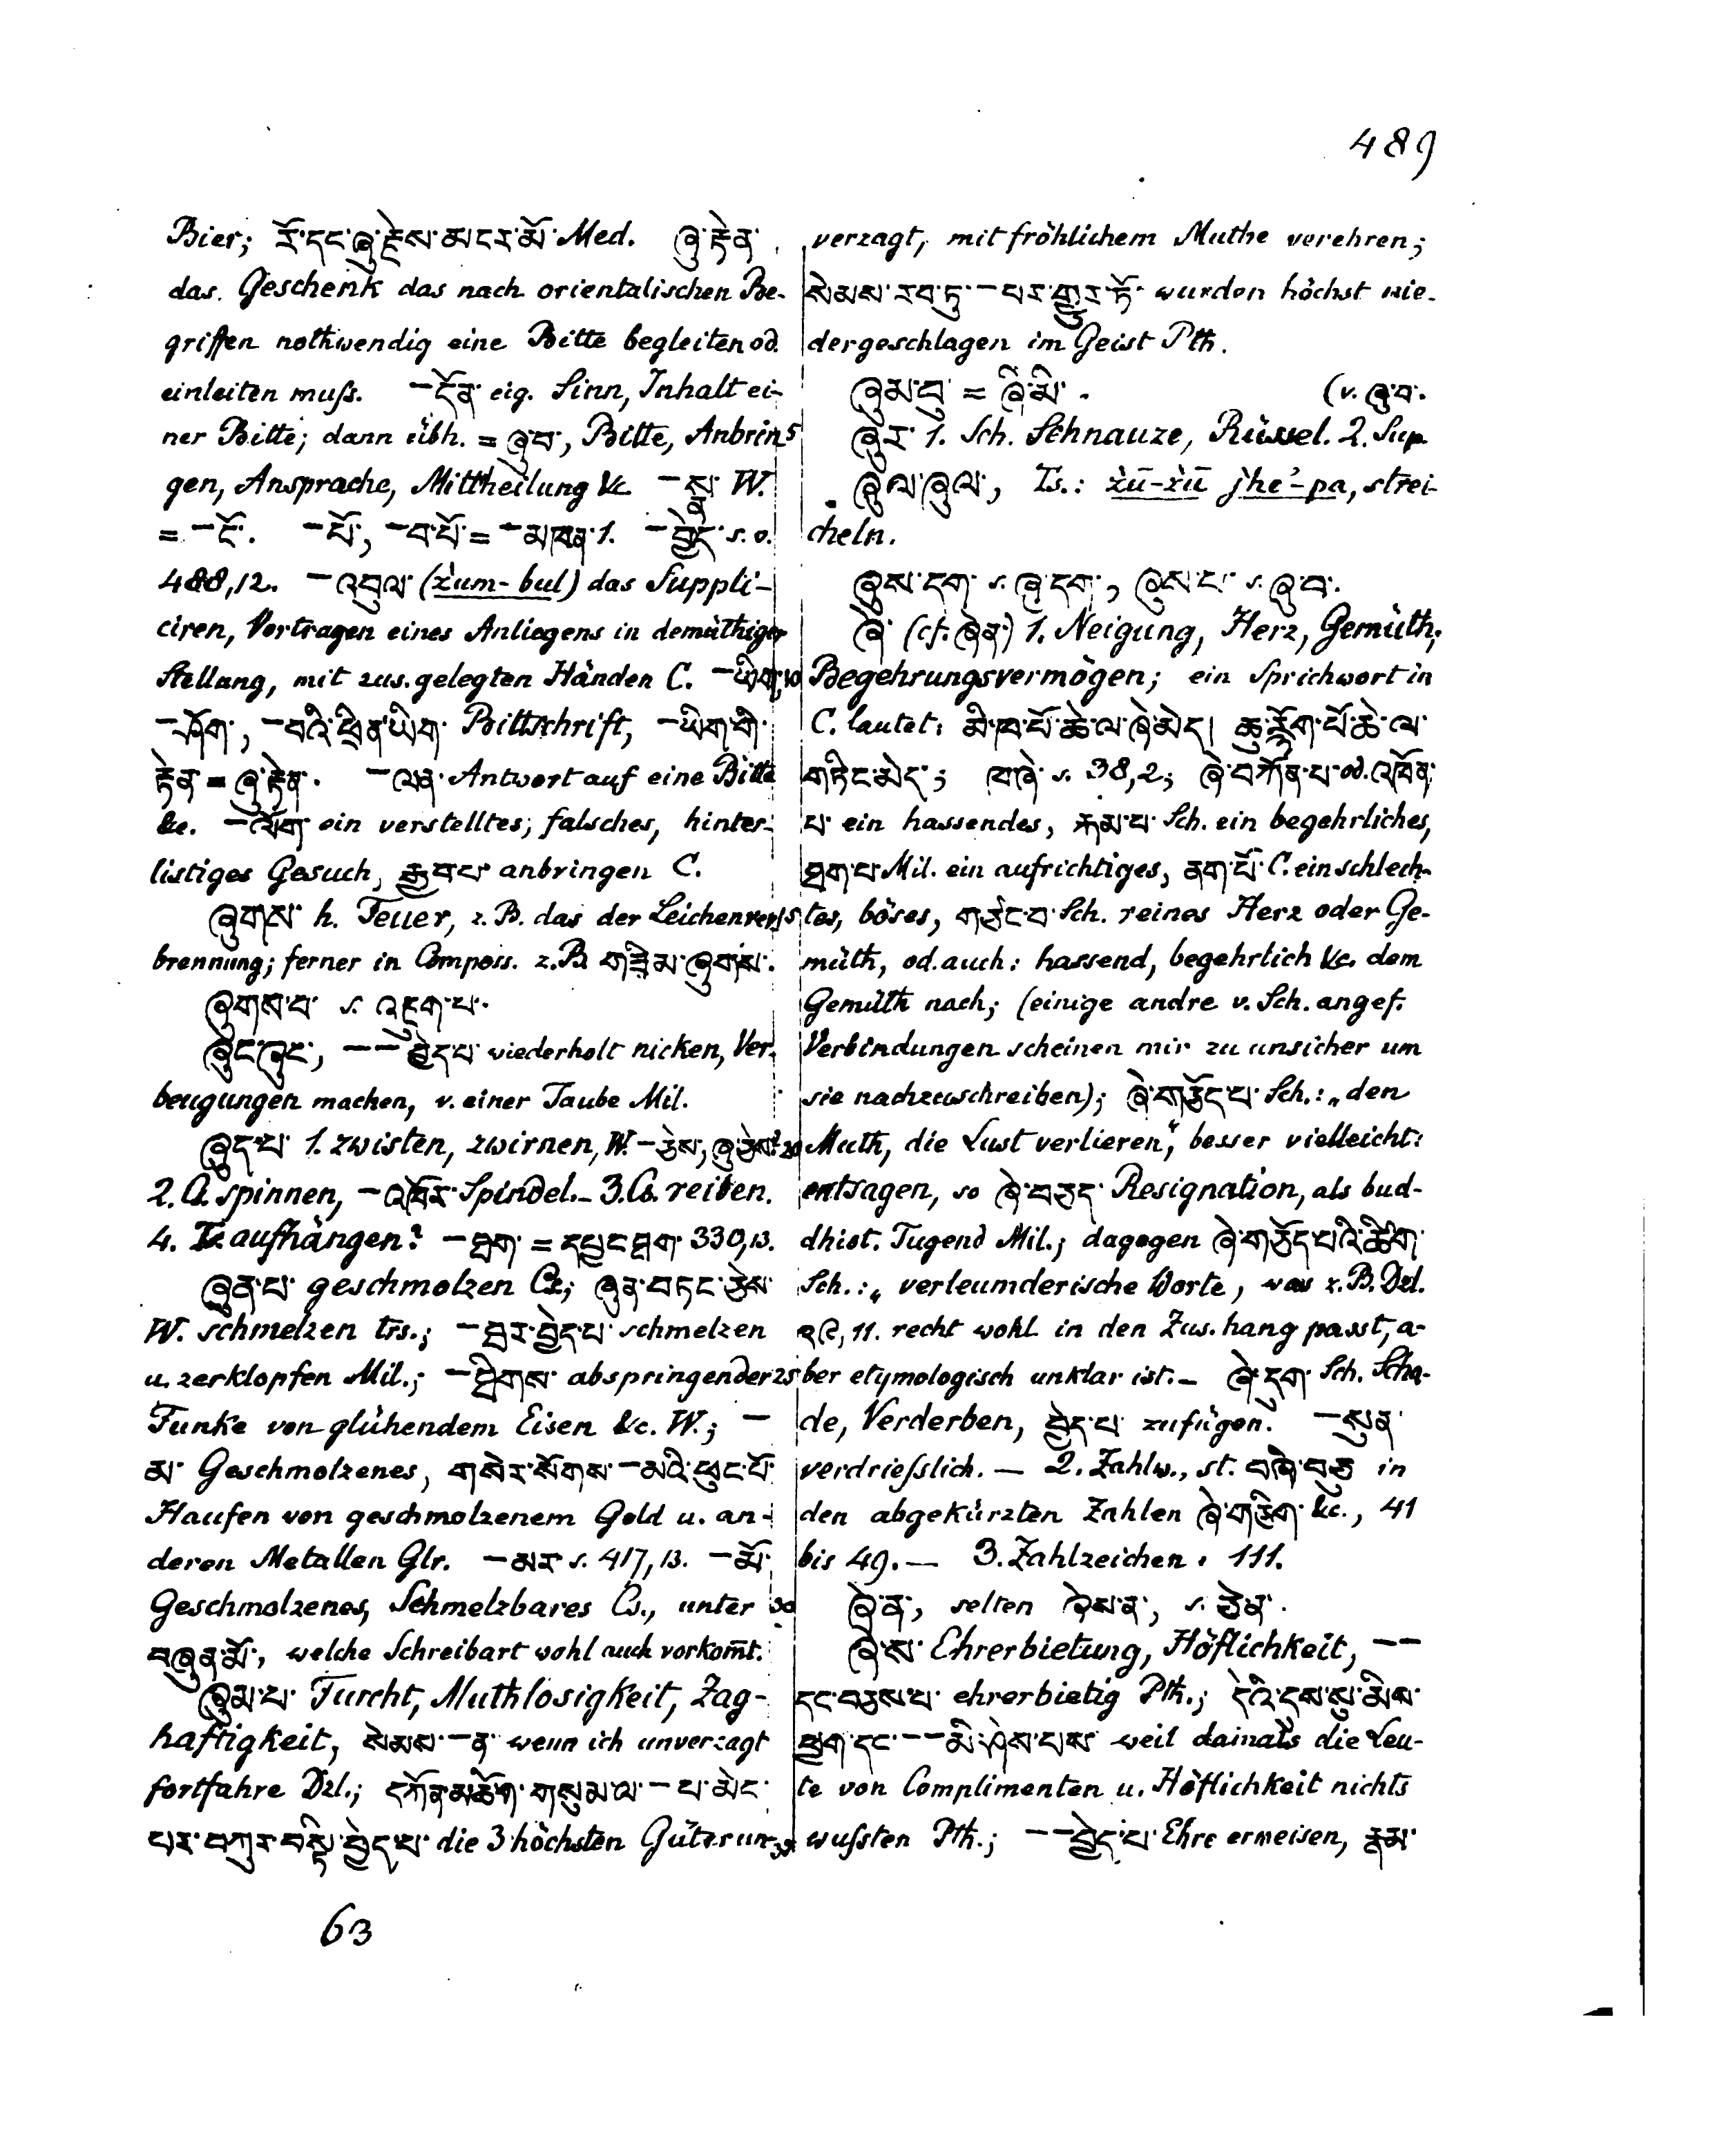 489
Bier; རོ་དང་ཞུ་རྗེས་མངར་མོ་ Med. ཞུ་རྟེན་
das Geschenk das nach orientalischen Be-
griffen nothwendig eine Bitte begleiten od.
einleiten muſs. –དོན་ eig. Sinn, Inhalt ei-
ner Bitte; dann übh. = ཞུ་བ་, Bitte, Anbrin- 5
gen, Ansprache, Mittheilung &c. –སྣ་ W.
= –ངོ་. –པོ་, –བ་པོ་ = –མཁན་ 1. –བྱེད་ s. o.
488,12. –འབུལ་ (żum-bul) das Suppli-
ciren, Vortragen eines Anliegens in demüthiger
Stellung, mit zus.gelegten Händen C. –ཡིག་, 10
–ཤོག་, –བའི་ཕྲིན་ཡིག་ Bittschrift, –ཡིག་གི་
རྟེན་ = ཞུ་རྟེན་. –ལན་ Antwort auf eine Bitte
&c. –ལོག་ ein verstelltes, falsches, hinter-
listiges Gesuch, རྒྱབ་པ་ anbringen C.
ཞུགས་ h. Feuer, z. B. das der Leichenver- 15
brennung; ferner in Composs. z.B. གཟིམ་ཞུགས་.
ཞུགས་པ་ s. འཇུག་པ་.
ཞུད་ཞུད་, – –བྱེད་པ་ wiederholt nicken, Ver-
beugungen machen, v. einer Taube Mil.
ཞུད་པ་ 1. zwisten, zwirnen, W. –ཅེས་, ཞུ་ཅེས་. 20
2. C. spinnen, –འཁོར་ Spindel. – 3. Cs. reiben.
4. Ts. aufhängen? –ཐག་ = དཔྱང་ཐག་ 330,13.
ཞུན་པ་ geschmolzen Cs.; ཞུན་བཏང་ཅེས་
W. schmelzen trs.; –བྲར་བྱེད་པ་ schmelzen
u. zerklopfen Mil.; –ཐིགས་ abspringender 25
Funke von glühendem Eisen &c. W.; –
མ་ Geschmolzenes, གསེར་སོགས་–མའི་ཕུང་པོ་
Haufen von geschmolzenem Gold u. an-
deren Metallen Glr. –མར་ s. 417,13. –མོ་
Geschmolzenes, Schmelzbares Cs., unter 30
བཞུན་མོ་, welche Schreibart wohl auch vorkom̄t.
ཞུམ་པ་ Furcht, Muthlosigkeit, Zag-
haftigkeit, སེམས་–ན་ wenn ich unverzagt
fortfahre Dzl.; དཀོན་མཆོག་གསུམ་ལ་–པ་མེད་
པར་བཀུར་བསྟི་བྱེད་པ་ die 3 höchsten Güter un- 35
63
verzagt, mit fröhlichem Muthe verehren;
སེམས་རབ་ཏུ་–པར་གྱུར་ཏོ་ wurden höchst nie-
dergeschlagen im Geist Pth.
ཞུམ་བུ་ = ཞི་མི་.
(v. ཞུ་བ་.
ཞུར་ 1. Sch. Schnauze, Rüssel. 2. Sup.
ཞུལ་ཞུལ་, Ts.: żū-żū jhe'-pa, strei-
cheln.
ཞུས་དག་ s. ཞུ་དག་, ཞུས་པ་ s. ཞུ་བ་.
ཞེ་ (cf. ཞེན་) 1. Neigung, Herz, Gemüth,
Begehrungsvermögen; ein Sprichwort in
C. lautet: མི་ཁ་པོ་ཆེ་ལ་ཞེ་མེད། ཆུ་རློག་པོ་ཆེ་ལ་
གཏིང་མེད་; ཁ་ཞེ་ s. 38,2; ཞེ་བཀོན་པ་ od. འཁོན་
པ་ ein hassendes, རྐམ་པ་ Sch. ein begehrliches,
ཐྲག་པ་ Mil. ein aufrichtiges, ནག་པོ་ C. ein schlech-
tes, böses, གཙང་བ་ Sch. reines Herz oder Ge-
müth, od. auch: hassend, begehrlich &c. dem
Gemüth nach; (einige andre v. Sch. angef.
Verbindungen scheinen mir zu unsicher um
sie nachzuschreiben); ཞེ་གཅོད་པ་ Sch.: „den
Muth, die Lust verlieren“, besser vielleicht:
entsagen, so ཞེ་བཅད་ Resignation, als bud-
dhist. Tugend Mil.; dagegen ཞེ་གཅོད་པའི་ཚིག་
Sch.: „verleumderische Worte, was z. B. Dzl.
༢༩, 11. recht wohl in den Zus.hang passt, a-
ber etymologisch unklar ist. – ཞེ་དག་ Sch. Scha-
de, Verderben, བྱེད་པ་ zufügen. –སུན་
verdrieſslich. – 2. Zahlw., st. བཞི་བཅུ་ in
den abgekürzten Zahlen ཞེ་གཅིག་ &c., 41
bis 49. – 3. Zahlzeichen: 111.
ཞེ་ན་, selten ཞེས་ན་, s. ཅེ་ན་.
ཞེ་ས་ Ehrerbietung, Höflichkeit, – –
དང་བཅས་པ་ ehrerbietig Pth.; དེའི་དུས་སུ་མིས་
ཕྱག་དང་– –མི་ཤེས་པས་ weil damals die Leu-
te von Complimenten u. Höflichkeit nichts
wuſsten Pth.; – –བྱེད་པ་ Ehre erweisen, རྣམ་